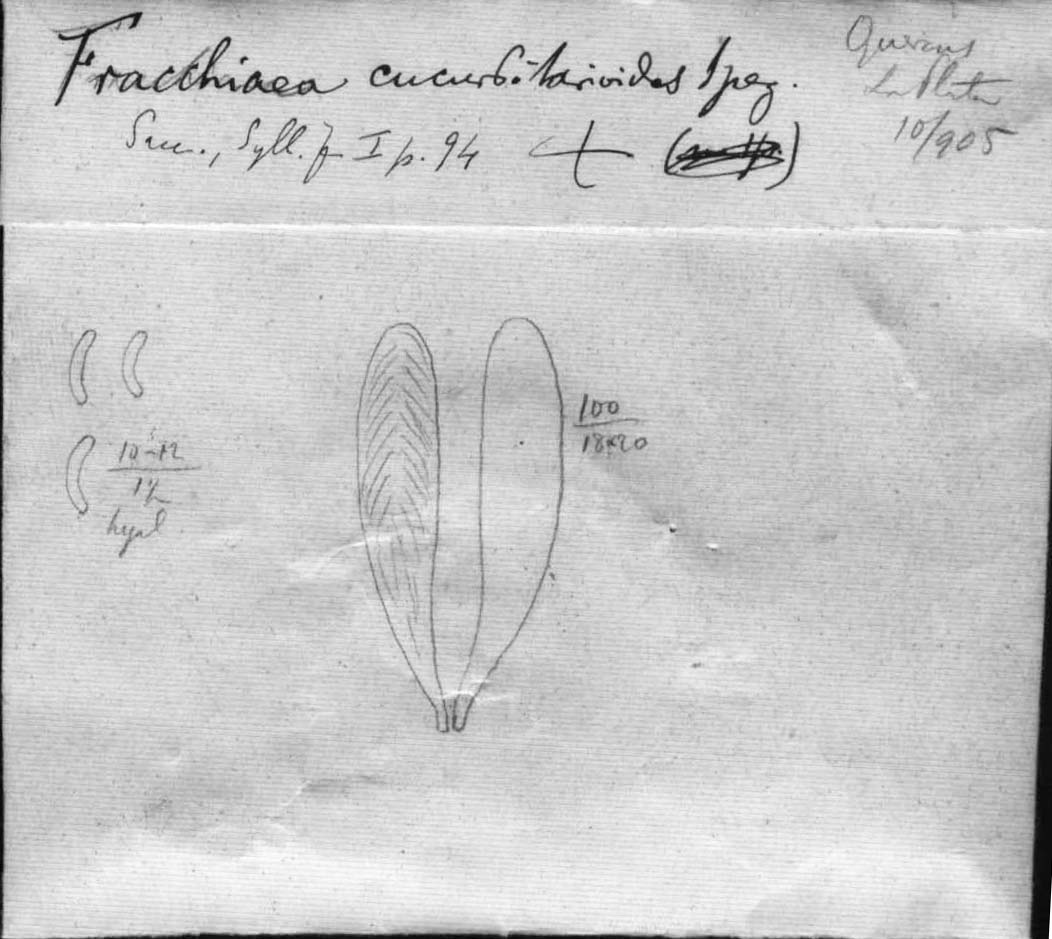 Fracchiaea cucurbitarioides Speg.
Sacc., Syll. f. I p. 94 +
Quercus
La Plata
10/905
10-12
1½
hyal
100
18×20